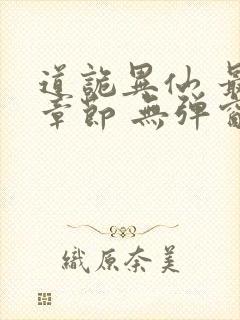 道詭異仙 最
章節 無彈窗
織原奈美